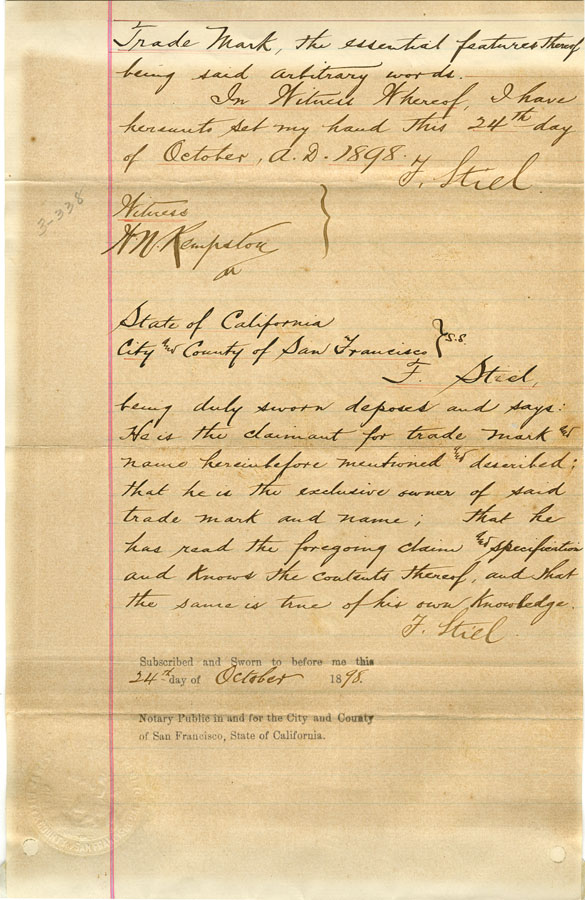 Trade Mark, the essential features thereof
being said arbitrary words.
In Witness Whereof, I have
hereunto set my hand this 24th day
of October, A.D. 1898.
F. Stiel.
3-338
Witness
State of California
City and County of San Francisco } s.s.
F. Stiel,
being duly sworn deposes and says:
He is the claimant for trade mark and
name hereinbefore mentioned and described;
that he is the exclusive owner of said
trade mark and name; that he
has read the foregoing claim and specification
and knows the contents thereof, and that
the same is true of his own knowledge.
F. Stiel.
Subscribed and Sworn to before me this
24th day of October 1898.
Notary Public in and for the City and County
of San Francisco, State of California.